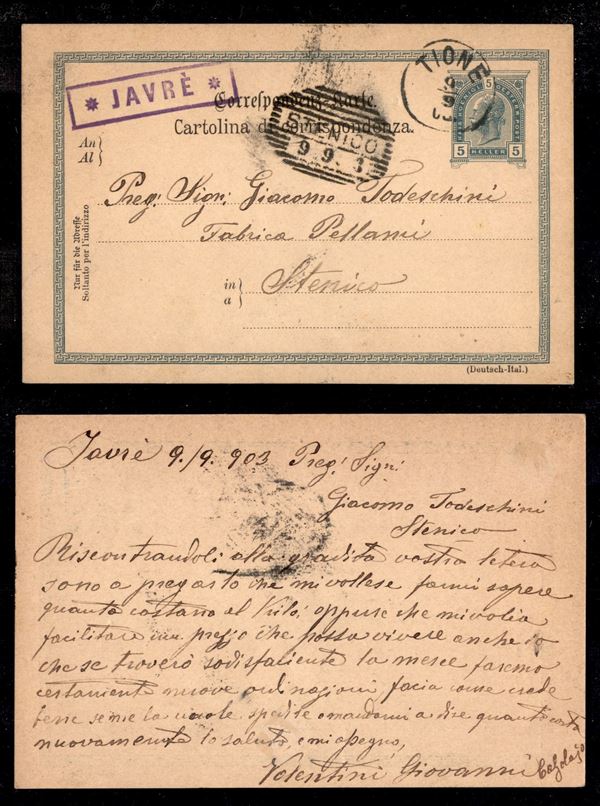 * JAVRÈ *
TIONE
9
9
03
Correspondenz-Karte.
Cartolina di corrispondenza.
5 5
5 HELLER 5
STENICO
9. 9. 3
An
Al
Preg: Sign: Giacomo Todeschini
Fabrica Pellami
in
a
Stenico
Nur für die Adresse
Soltanto per l'indirizzo
(Deutsch-Ital.)
Javrè 9./9. 903 Preg: Sign:
Giacomo Todeschini
Stenico
Riscontrandoli alla gradita vostra letera
sono a pregarlo che mi vollese farmi sapere
quanto costano al Kilò; oppure che mi voglia
facilitare un prezzo che possa vivere anche io
che se troverò sodisfaciente la merce faremo
certamente nuove ordinazioni facia come crede
bene se me la vuole spedire o mandarmi a dire quanto costa
nuovamente lo saluto, e mi segno,
Valentini Giovanni Calzolajo